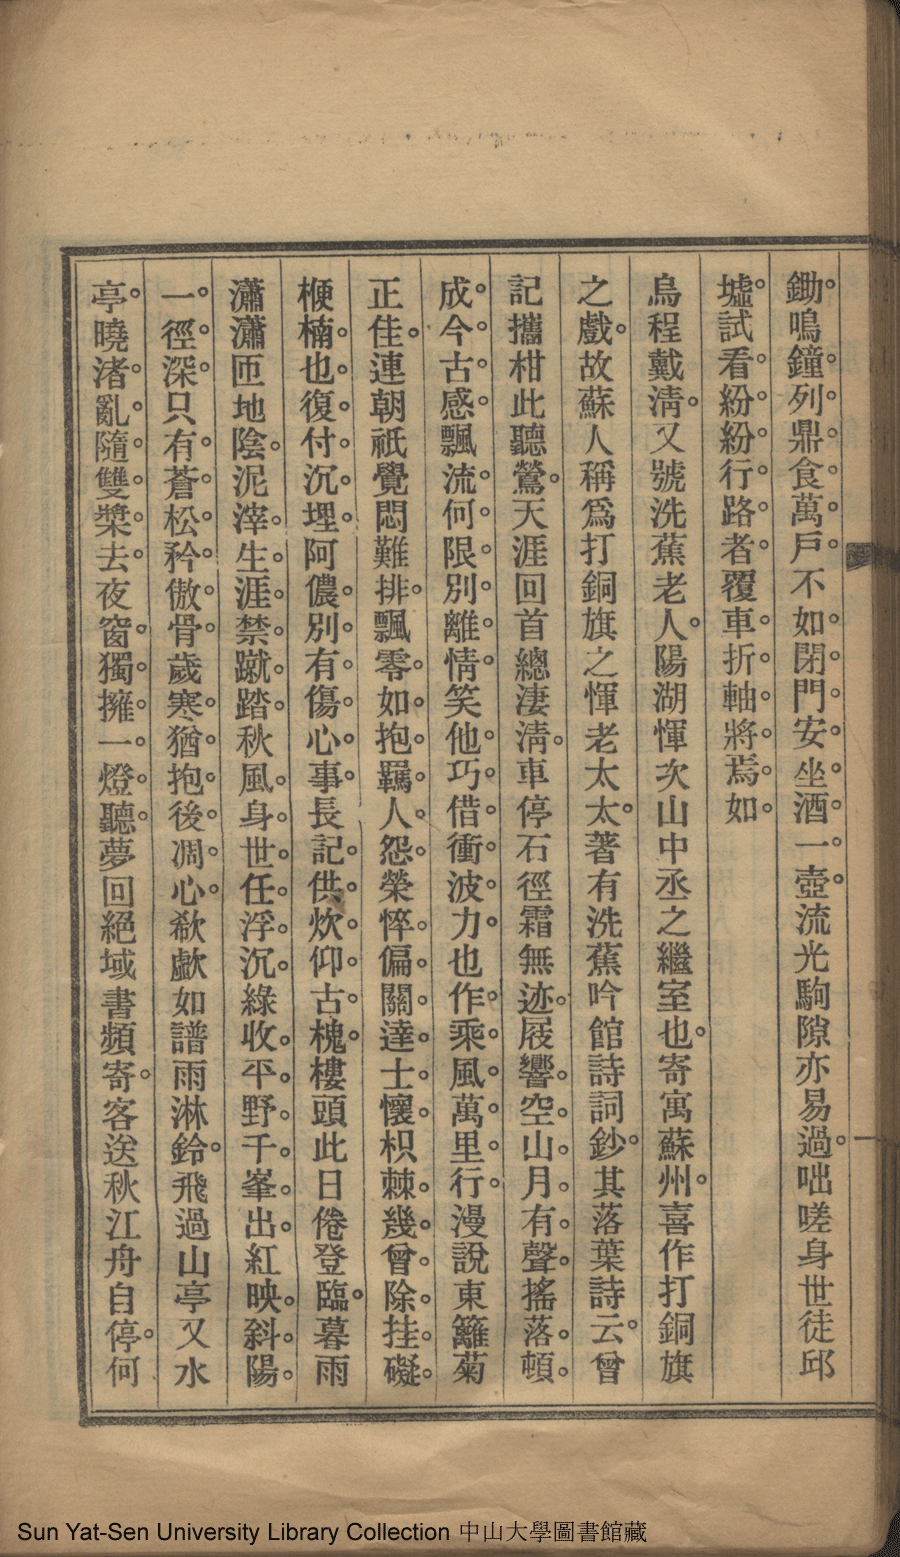 鋤鳴鐘列鼎食萬戶不如閉門安坐酒一壺流光駒隙亦易過咄嗟身世徒邱
墟試看紛紛行路者覆車折軸將焉如
烏程戴淸又號洗蕉老人陽湖惲次山中丞之繼室也寄寓蘇州喜作打銅旗
之戲故蘇人稱爲打銅旗之惲老太太著有洗蕉吟館詩詞鈔其落葉詩云曾
記攜柑此聽鶯天涯回首總淒淸車停石徑霜無迹屐響空山月有聲搖落頓
成今古感飄流何限別離情笑他巧借衝波力也作乘風萬里行漫說東籬菊
正佳連朝祇覺悶難排飄零如抱羈人怨榮悴偏關達士懷枳棘幾曾除挂礙
楩楠也復付沉埋阿儂別有傷心事長記供炊仰古槐樓頭此日倦登臨暮雨
瀟瀟匝地陰泥滓生涯禁蹴踏秋風身世任浮沉綠收平野千峯出紅映斜陽
一徑深只有蒼松矜傲骨歲寒猶抱後凋心欷歔如譜雨淋鈴飛過山亭又水
亭曉渚亂隨雙槳去夜窗獨擁一燈聽夢回絕域書頻寄客送秋江舟自停何
Sun Yat-Sen University Library Collection 中山大學圖書館藏